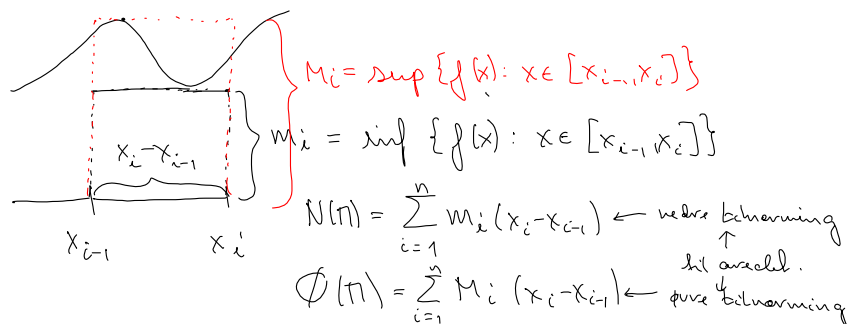 M_i = sup {f(x): x ∈ [x_{i-1}, x_i]}
m_i = inf {f(x): x ∈ [x_{i-1}, x_i]}
x_i - x_{i-1}
N(Π) = Σ_{i=1}^{n} m_i (x_i - x_{i-1}) ← nedre tilnærming
x_{i-1} x_i
↑
til arealet.
↓
Ø(Π) = Σ_{i=1}^{n} M_i (x_i - x_{i-1}) ← øvre tilnærming